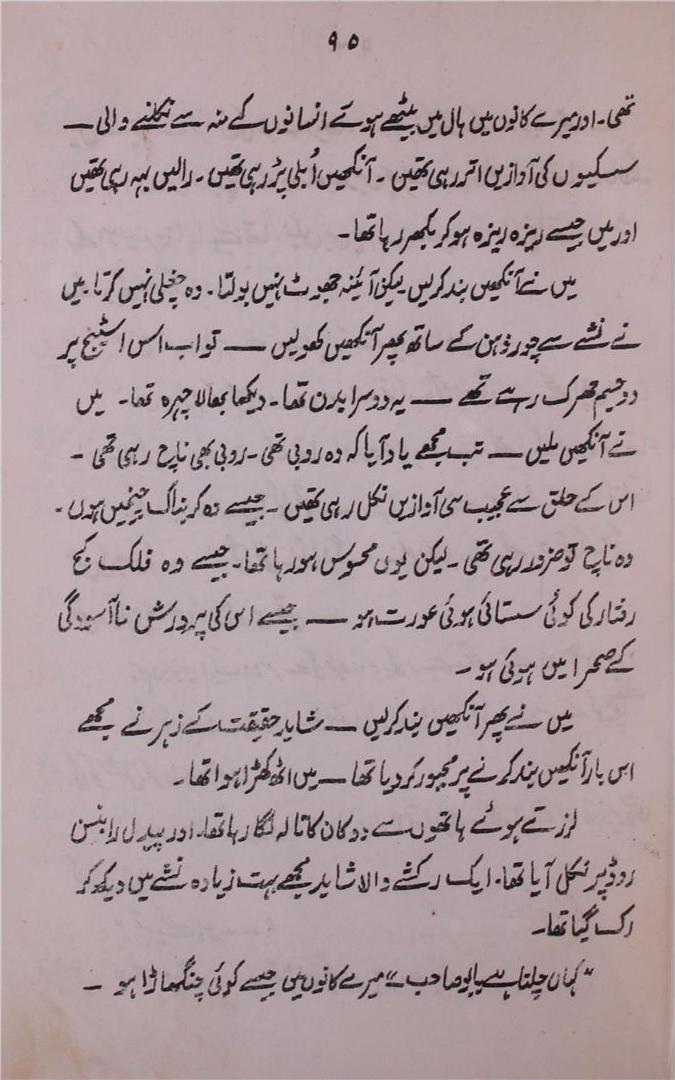 ۹۵
تھی۔ اور میرے کانوں میں ہال میں بیٹھے ہوئے انسانوں کے منہ سے نکلنے والی —
سسکیوں کی آوازیں اتر رہی تھیں ۔ آنکھیں اُبلی پڑ رہی تھیں ۔ رالیں بہہ رہی تھیں
اور میں جیسے ریزہ ریزہ ہو کر بکھر رہا تھا۔
میں نے آنکھیں بند کرلیں لیکن آئینہ جھوٹ نہیں بولتا۔ وہ چغلی نہیں کرتا۔ میں
نے نشے سے چور ذہن کے ساتھ پھر آنکھیں کھولیں — تو اب اس اسٹیج پر
دو جسم تھرک رہے تھے — یہ دوسرا بدن تھا۔ دیکھا بھالا چہرہ تھا۔ میں
نے آنکھیں ملیں — تب مجھے یاد آیا کہ وہ روبی تھی ۔ روبی بھی ناچ رہی تھی ۔
اس کے حلق سے عجیب سی آوازیں نکل رہی تھیں ۔ جیسے وہ کربناک چیخیں ہوں ۔
وہ ناچ تو ضرور رہی تھی ۔ لیکن یوں محسوس ہو رہا تھا۔ جیسے وہ فلک کج
رفتار کی کوئی ستائی ہوئی عورت ہو — جیسے اس کی پرورش نا آسودگی
کے صحرا میں ہوئی ہو ۔
میں نے پھر آنکھیں بند کرلیں — شاید حقیقت کے زہر نے مجھے
اس بار آنکھیں بند کرنے پر مجبور کر دیا تھا — میں اٹھ کھڑا ہوا تھا۔
لرزتے ہوئے ہاتھوں سے دوکان کا تالہ لگا رہا تھا۔ اور پیدل رابنسن
روڈ پر نکل آیا تھا۔ ایک رکشے والا شاید مجھے بہت زیادہ نشے میں دیکھ کر
رک گیا تھا۔
"کہاں چلنا ہے بابو صاحب" میرے کانوں میں جیسے کوئی چنگھاڑا ہو —